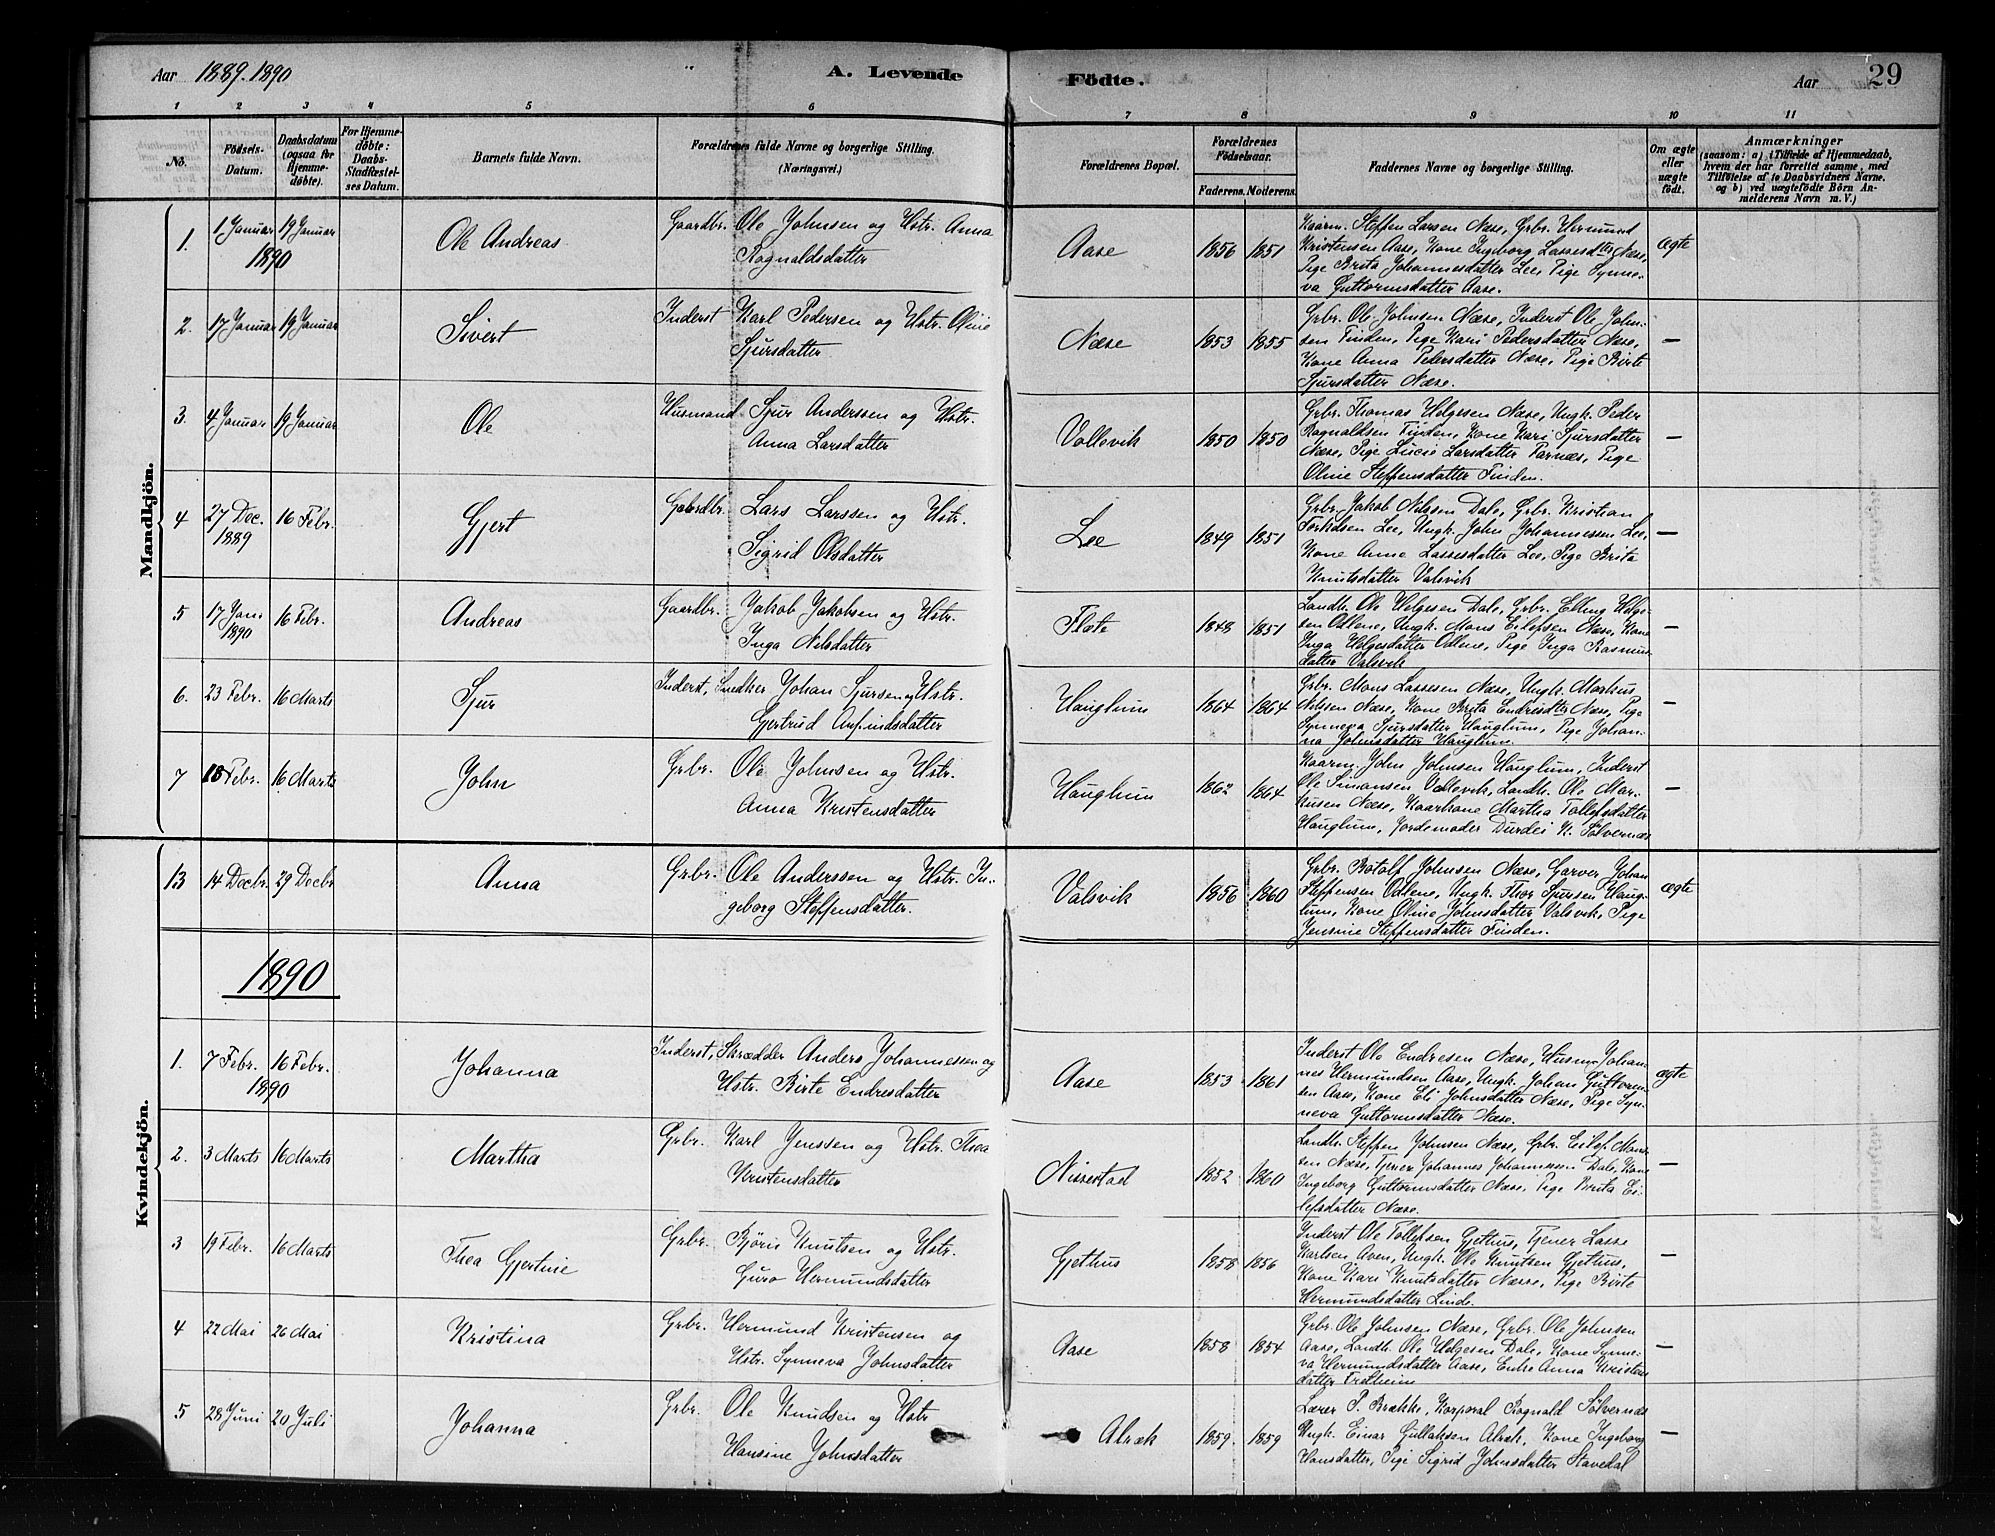 Aar 1889.1890 A. Levende Födte. Aar 29
1 2 3 4 5 6 7 8 9 10 11
No. Födsels-Datum. Daabsdatum (ogsaa for Hjemmedöbte). For Hjemmedöbte: Daabs-Stadfæstelses Datum. Barnets fulde Navn. Forældrenes fulde Navne og borgerlige Stilling. (Næringsvei.) Forældrenes Bopæl. Forældrenes Födselsaar. Faderens. Moderens. Faddernes Navne og borgerlige Stilling. Om ægte eller uægte födt. Anmærkninger (saasom: a) Tilfælde af Hjemmedaab, hvem der har forrettet samme, med Tilföielse af to Daabsvidners Navne, og b) ved uægtefödte Börn Anmelderens Navn m. V.)
Mandkjön.
1. 1 Januar 19 Januar 1890 Ole Andreas Gaardbr. Ole Johnsen og Hstr. Anna
Rognaldsdatter Aase 1856 1851 Kaarm. Steffen Larsen Næse, Grbr. Hermund
Kristensen Aase, Kone Ingeborg Lassesdtr Næse, ægte
Pige Brita Johannesdatter Lee, Pige Synne-
va Guttormsdatter Aase.
2. 17 Januar 19 Januar Sivert Inderst Karl Pedersen og Hstr. Oline
Sjursdatter Næse 1853 1855 Grbr. Ole Johnsen Næse, Inderst Ole John-
sen Finden, Pige Kari Pedersdatter Næse, —
Kone Anna Pedersdatter Næse, Pige Birte
Sjursdatter Næse.
3. 4 Januar 19 Januar Ole Husmand Sjur Anderssen og Hstr.
Anna Larsdatter Vollevik 1850 1850 Grbr. Thomas Helgesen Næse, Ungk. Peder
Rognaldsen Finden, Kone Kari Sjursdatter —
Næse, Pige Lucie Larsdatter Farnæs, Pige
Oline Steffensdatter Finden.
4 27 Dec. 1889 16 Febr. Gjert Gaardbr. Lars Larssen og Hstr.
Sigrid Olsdatter Lee 1849 1851 Grbr. Jakob Nilssen Dale, Grbr. Kristian
Torkelsen Lee, Ungk. John Johannessen Lee, —
Kone Anna Lassesdatter Lee, Pige Brita
Knutsdatter Valsvik
5 17 Jani 1890 16 Febr. Andreas Gaardbr. Jakob Jakobsen og Hstr.
Inga Nilsdatter Flate 1848 1851 Landh. Ole Helgesen Dale, Grbr. Elling Helge-
sen Odlene, Ungk. Mons Eilefsen Næse, Kone —
Inga Helgesdatter Odlene, Pige Inga Rasmus-
datter Valsvik
6. 23 Febr. 16 Marts Sjur Inderst, Snedker Johan Sjursen og Hstr.
Gjertrud Anfindsdatter Hauglum 1864 1864 Grbr. Mons Lassesen Næse, Ungk. Markus
Nilsen Næse, Kone Brita Endresdtr Næse, Pige —
Synneva Sjursdatter Hauglum, Pige Johan-
na Johnsdatter Hauglum.
7 18 Febr. 16 Marts John Grbr. Ole Johnsen og Hstr.
Anna Kristensdatter Hauglum 1862 1864 Kaarm. John Johnsen Hauglum, Inderst
Ole Simonsen Vallevik, Landh. Ole Mar- —
kusen Næse, Kaarkone Martha Tollefsdatter
Hauglum, Jordemoder Durdei K. Sølvernæs
Kvindekjön.
13 14 Decbr. 29 Decbr Anna Grbr. Ole Anderssen og Hstr. In-
geborg Steffensdatter. Valsvik 1856 1860 Grbr. Botolf Johnsen Næse, Garver Johan
Steffensen Odlene, Ungk. Thor Sjursen Haug- ægte
lum, Kone Oline Johnsdatter Valsvik, Pige
Jensine Steffensdatter Finden.
1890
1. 7 Febr. 16 Febr. 1890 Johanna Inderst, Skrædder Anders Johannessen og
Hstr. Birte Endresdatter Aase 1853 1861 Inderst Ole Endresen Næse, Husm. Johan-
nes Hermundsen Aase, Ungk. Johan Guttorm- ægte
sen Aase, Kone Eli Johnsdatter Næse, Pige Syn-
neva Guttormsdatter Næse.
2. 3 Marts 16 Marts Martha Grbr. Karl Jenssen og Hstr. Thea
Kristensdatter Nissestad 1852 1860 Landh. Steffen Johnsen Næse, Grbr. Eilef Mons-
sen Næse, Tjener Johannes Johannesen Dale, Kone —
Ingeborg Guttormsdatter Næse, Pige Brita Ei-
lefsdatter Næse.
3 19 Febr. 16 Marts Thea Gjertine Grbr. Björn Knutsen og Hstr.
Guro Hermundsdatter Gjethus 1858 1856 Inderst Ole Tollefsen Gjethus, Tjener Lasse
Karlsen Aven, Ungk. Ole Knutsen Gjethus, —
Kone Kari Knutsdatter Næse, Pige Birte
Hermundsdatter Linde.
4 22 Mai 26 Mai Kristina Grbr. Hermund Kristensen og
Hstr. Synneva Johnsdatter Aase 1858 1854 Grbr. Ole Johnsen Næse, Grbr. Ole Johnsen
Aase, Landh. Ole Helgesen Dale, Kone Synne- —
va Hermundsdatter Aase, Enke Anna Kristens
datter Fretheim
5 28 Juni 20 Juli Johanna Grbr. Ole Knudsen og Hstr
Hansine Johnsdatter Alræk 1859. 1859 Lærer P. Brække, Korporal Rognald Sølvernæs
Ungk. Einar Gullaksen Alræk, Kone Ingeborg —
Hansdatter, Pige Sigrid Johnsdatter Stavedal